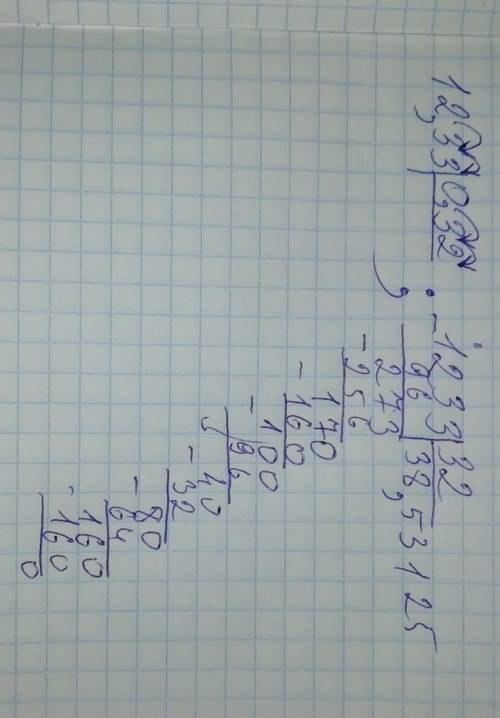 12,33 | 0,32
- 1233 | 32
96 | 38,53125
273
- 256
170
- 160
100
- 96
40
- 32
80
- 64
160
- 160
0